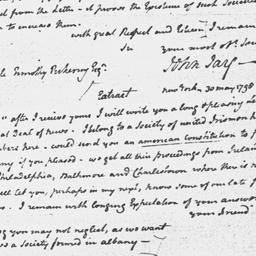 from the Letter - it proves the Existence of such Societies
to increase them.
with great Respect and Esteem I remain
Sir
your most ob. Ser
John Jay
Timothy Pickering Esq.
Extract
New York, 30 may 1798
after I recieve yours I will write you a long & pleasing
deal of news. I belong to a Society of united Irishmen
here - could send you an american constitution to
if you pleased - we get all their proceedings from Ireland
Philadelphia, Baltimore and Charlestown where there is
tell let you, perhaps in my next, know some of our late
I remain with longing Expectation of your answer
your Friend
may not neglect, as we want
a Society formed in albany -